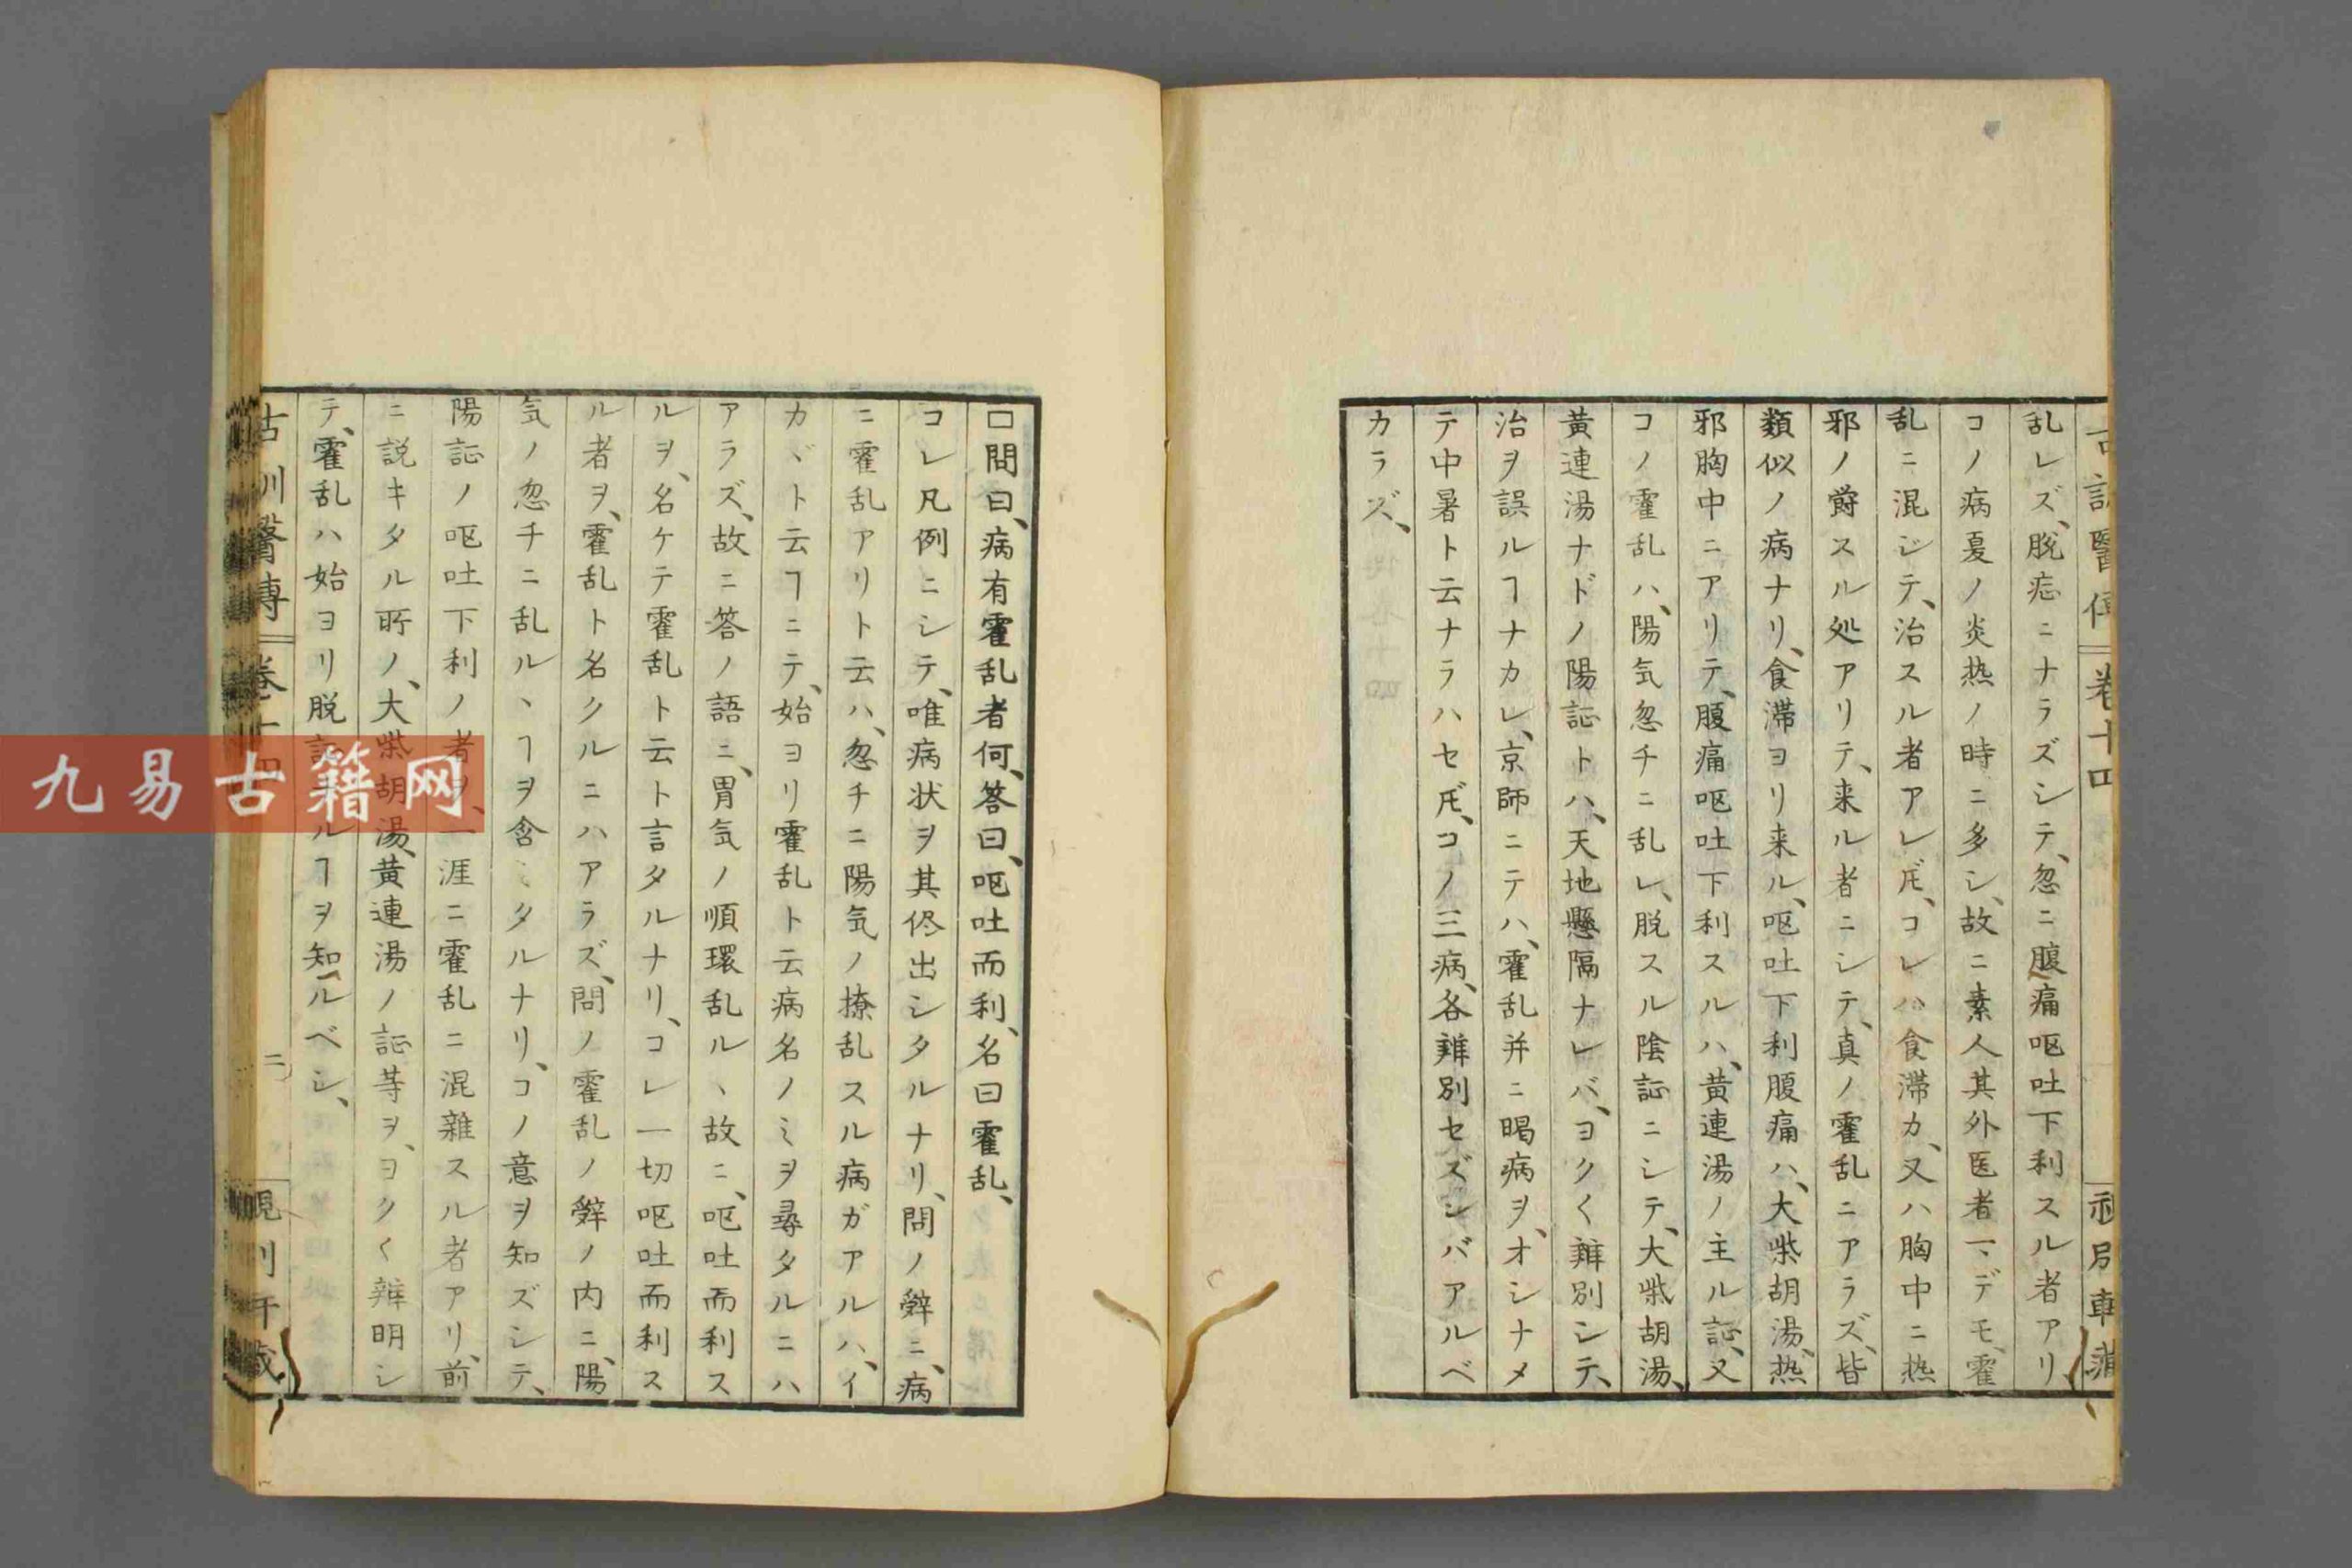 乱レズ、脱症ニナラズシテ、忽ニ腹痛呕吐下利スル者アリ
コノ病夏ノ炎热ノ時ニ多シ、故ニ素人其外医者一、デモ、霍
乱ニ混ジテ、治スル者アレ𪜈、コレハ食滞カ、又ハ胸中ニ热
邪ノ欝スル処アリテ、来ル者ニシテ、真ノ霍乱ニアラズ、皆
類似ノ病ナリ、食滞ヨリ来ル、呕吐下利腹痛ハ、大柴胡湯、热
邪胸中ニアリテ、腹痛呕吐下利スルハ、黄連湯ノ主ル証、又
コノ霍乱ハ、陽気忽チニ乱レ、脱スル陰証ニシテ、大柴胡湯、
黄連湯ナドノ陽証トハ、天地懸隔ナレバ、ヨク〱辨別シテ、
治ヲ誤ルヿナカレ、京師ニテハ、霍乱并ニ暍病ヲ、オシナメ
テ中暑ト云ナラハセ𪜈、コノ三病、各辨別セズンバアルベ
カラズ、
□問曰、病有霍乱者何、答曰、呕吐而利、名曰霍乱、
コレ凡例ニシテ、唯病状ヲ其侭出シタルナリ、問ノ辤ニ、病
ニ霍乱アリト云ハ、忽チニ陽気ノ撩乱スル病ガアルハ、イ
カヾト云ヿニテ、始ヨリ霍乱ト云病名ノミヲ尋タルニハ
アラズ、故ニ答ノ語ニ、胃気ノ順環乱ルヽ故ニ、呕吐而利ス
ルヲ、名ケテ霍乱ト云ト言タルナリ、コレ一切呕吐而利ス
ル者ヲ、霍乱ト名クルニハアラズ、問ノ霍乱ノ辤ノ内ニ、陽
気ノ忽チニ乱ルヽヿヲ含ミタルナリ、コノ意ヲ知ズシテ、
陽証ノ呕吐下利ノ者ヲ、一涯ニ霍乱ニ混雑スル者アリ、前
ニ説キタル所ノ、大柴胡湯、黄連湯ノ証等ヲ、ヨク〱辨明シ
テ、霍乱ハ始ヨリ脱証ナルヿヲ知ルベシ、
古訓醫傳 卷十四 二
九易古籍网